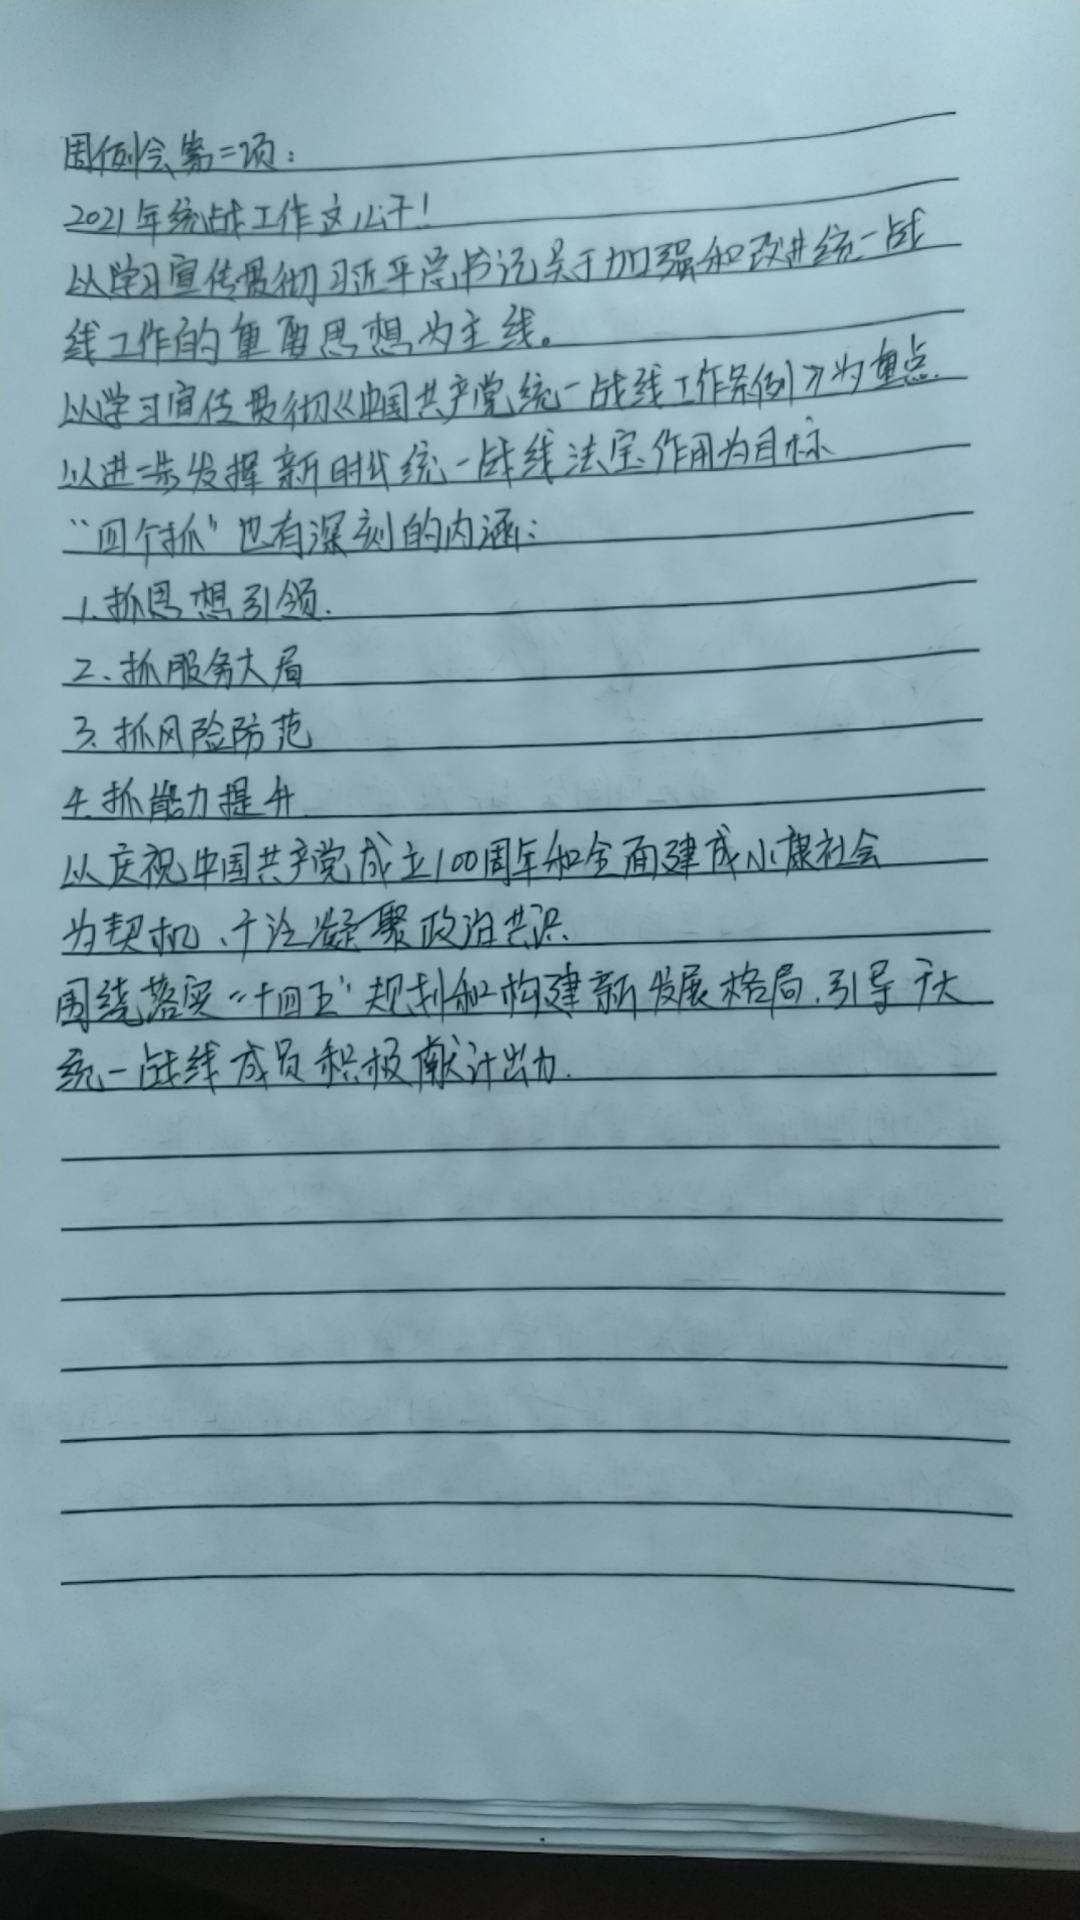 周例会第二项：
2021年统战工作这么干！
以学习宣传贯彻习近平总书记关于加强和改进统一战
线工作的重要思想为主线。
以学习宣传贯彻《中国共产党统一战线工作条例》为重点.
以进一步发挥新时代统一战线法宝作用为目标
“四个抓”也有深刻的内涵：
1.抓思想引领.
2、抓服务大局
3.抓风险防范
4.抓能力提升.
以庆祝中国共产党成立100周年和全面建成小康社会
为契机、广泛凝聚政治共识.
围绕落实“十四五”规划和构建新发展格局.引导广大
统一战线成员积极献计出力.